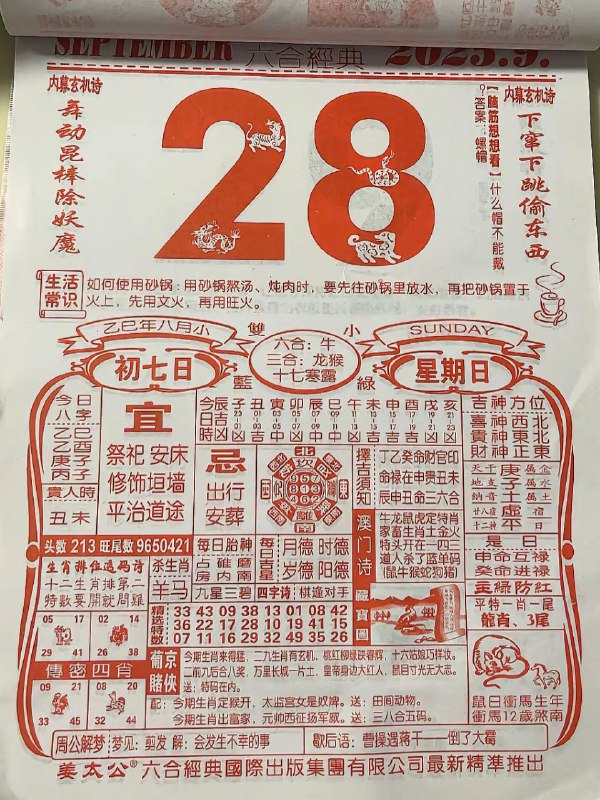 SEPTEMBER 六合經典 2025.9.
内幕玄机诗
舞动昆棒除妖魔
28
【脑筋想想看】什么帽不能戴
?答案:螺帽
内幕玄机诗
下窜下跳偷东西
生活常识
如何使用砂锅:用砂锅熬汤、炖肉时,要先往砂锅里放水,再把砂锅置于
火上,先用文火,再用旺火。
乙巳年八月小
雙 小
SUNDAY
初七日
六合:牛
三合:龙猴
十七寒露
星期日
藍 綠
今日八字
乙巳
乙酉
庚子
丙子
貴人時
丑 未
宜
祭祀 安床
修饰垣墙
平治道途
今日時
辰子丑寅卯辰巳午未申酉戌亥
忌
出行
安葬
北
東
南
擇吉須知
丁乙癸命财官印
命禄在申贵丑未
辰申丑命三六合
吉神方位
喜神西北
貴神東北
财神正東
天干 庚 属金
地支 子 属水
纳音 土 属土
廿八宿 虚 宿
十二神 平 日
是日
申命互禄
癸命进禄
主綠防紅
平特一肖一尾
龍肖、3尾
头数 213 旺尾数 9650421
生肖排位选码诗
十二生肖排第二
特數要開就問雞
杀生肖
羊马
每日胎神
占碓磨
房内南
九星三碧
每日吉星
月德 时德
岁德 阳德
四字诗 棋逢对手
澳门诗
牛龙鼠虎定特肖
家畜生肖土金火
特头开在一四三
道人杀了蓝单码
(鼠牛猴蛇狗猪)
藏寶圖
精选特数
33 43 44 38 13 01 08 42
36 22 17 28 10 19 41 15
07 11 16 29 32 49 35 26
05 17
29 41
02 14
38
傳密四肖
09 21
33 45
08 20
32 44
葡京賭俠
今期生肖来得猛,二九生肖有玄机,桃红柳绿映春辉,十六姑娘巧样妆。
二前九后合八奖,万里长城一片土,皇帝身边大红人,鼠目寸光无大志。
送:特码在内。
配:今期生肖定猴开,太监宫女是奴婢。送:田间动物。
今期生肖出富家,元帅西征扬军威。送:三八合五码。
鼠日衝馬生年
衝馬12歲煞南
周公解梦 梦见:剪发 解:会发生不幸的事
歇后语:曹操遇蒋干——倒了大霉
姜太公 六合經典國際出版集團有限公司最新精準推出